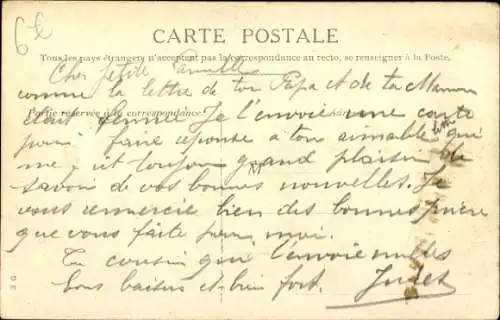 6e
CARTE POSTALE
Tous les pays étrangers n'acceptent pas la correspondance au recto, se renseigner à la Poste.
Cher petite
comme la lettre de ton Papa et de ta Maman
Partie réservée à la correspondance.
était fermée Je t'envoie une carte
pour faire réponse à ton aimable lettre qui
me fait toujour grand plaisir de
savoir de vos bonnes nouvelles. Je
vous remercie bien des bonnes prière
que vous faite pour moi.
Ta cousin qui t'envoie milles
bons baisers et bien fort. Jules